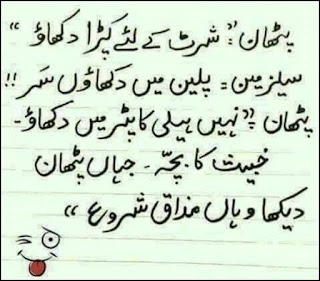 پٹھان": شرٹ کے لئے کپڑا دکھاؤ "
سیلزمین = پلین میں دکھاؤں سَر !!
پٹھان "نہیں ہیلی کاپٹر میں دکھاؤ۔
خبیث کا بچّہ ۔ جہاں پٹھان
دیکھا وہاں مذاق شروع "